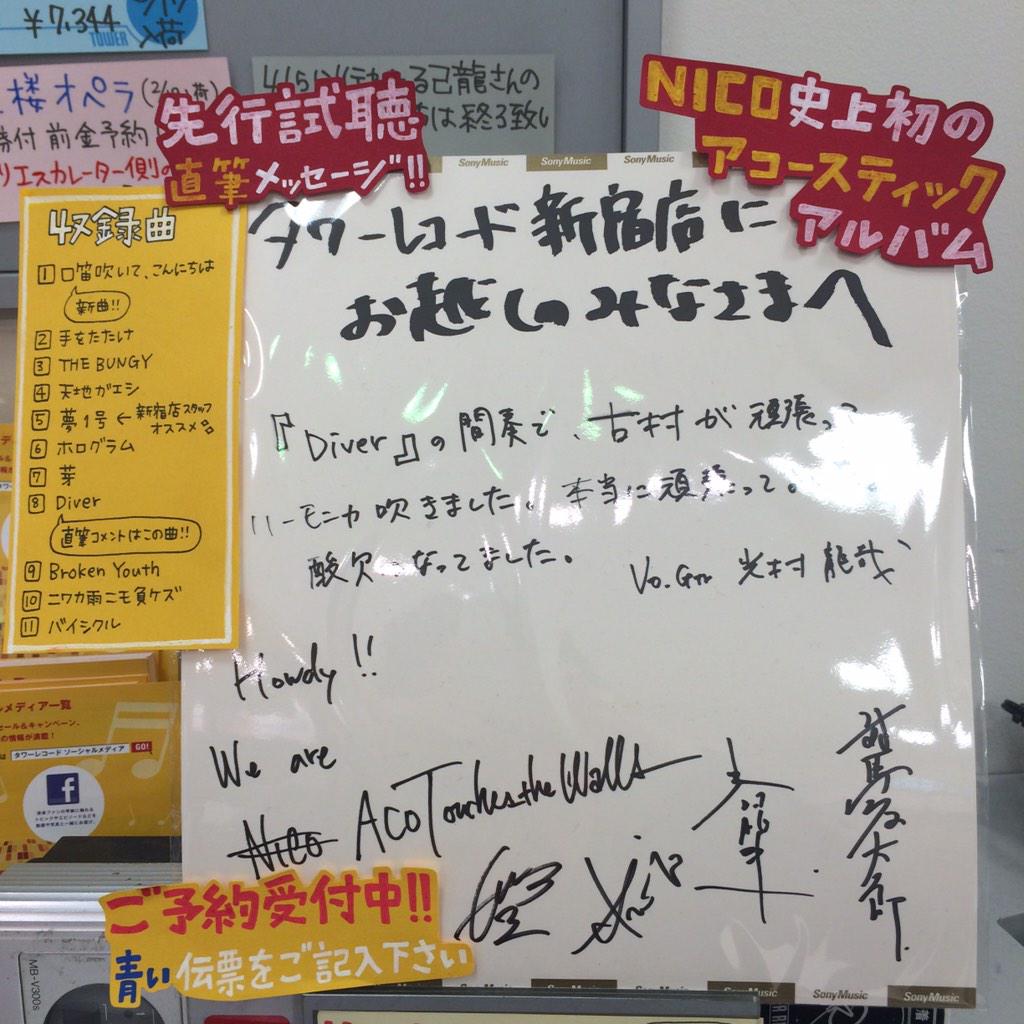 ¥7,344
TOWER
入荷
楼オペラ
付 前金予約
リエスカレーター側の
己龍さんの
は終了致し
先行試聴
直筆メッセージ!!
NICO史上初の
アコースティック
アルバム
SonyMusic SonyMusic SonyMusic
収録曲
1 口笛吹いて、こんにちは
新曲!!
2 手をたたけ
3 THE BUNGY
4 天地ガエシ
5 夢1号 ← 新宿店スタッフ
オススメ
6 ホログラム
7 芽
8 Diver
直筆コメントはこの曲!!
9 Broken Youth
10 ニワカ雨ニモ負ケズ
11 バイシクル
タワーレコード新宿店に
お越しのみなさまへ
『Diver』の間奏で、古村が頑張っ
ハーモニカ吹きました。本当に頑張って。
酸欠になってました。
Vo.Gt 光村 龍哉
Howdy!!
We are
NICO ACO Touches the Walls
対馬祥太郎
メディア一覧
セール&キャンペーン、
の情報が満載!
タワーレコード ソーシャルメディア GO!
ご予約受付中!!
青い伝票をご記入下さい
MB-V300s
SonyMusic SonyMusic